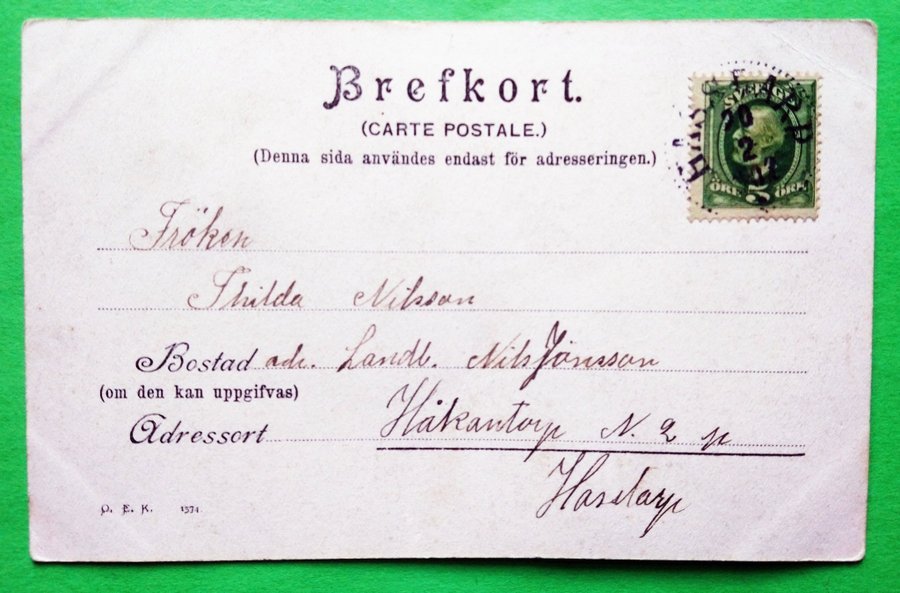 Brefkort.
(CARTE POSTALE.)
(Denna sida användes endast för adresseringen.)
SVERIGE
20
2
02
ÖRE 5 ÖRE
Fröken
Thilda Nilsson
Bostad adr. Landb. Nils Jönsson
(om den kan uppgifvas)
Adressort Håkantorp N. 2 p
Haselarp
O. E. K. 1374